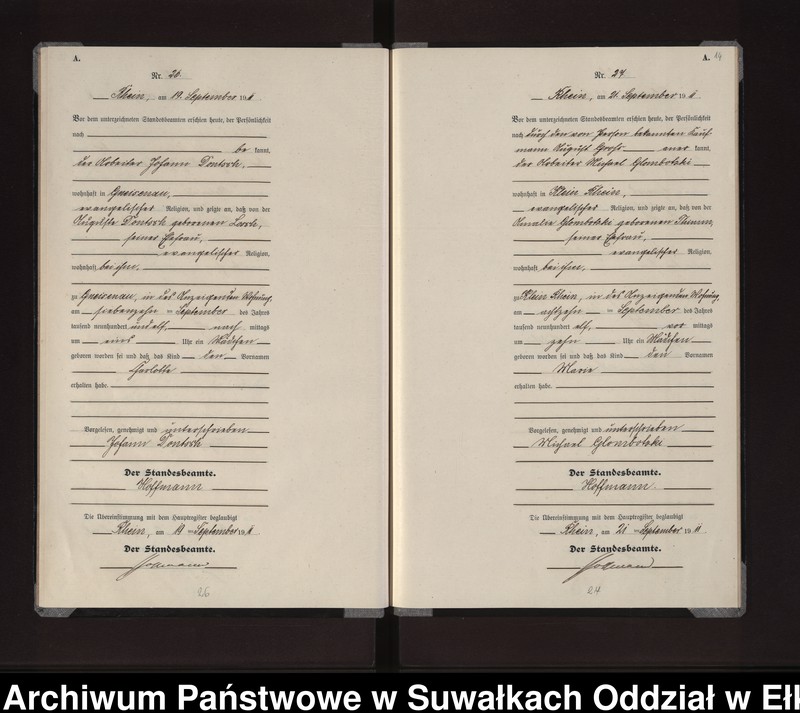 A.
Nr. 26.
Rhein, am 19. September 1911
Vor dem unterzeichneten Standesbeamten erschien heute, der Persönlichkeit
nach
be kannt,
der Arbeiter Johann
wohnhaft in Gneisenau,
evangelischer Religion, und zeigte an, daß von der
Auguste geborenen
seiner Ehefrau,
evangelischer Religion,
wohnhaft bei ihm,
zu Gneisenau, in des Anzeigenden Wohnung,
am siebenzehn ten September des Jahres
tausend neunhundert und elf, nach mittags
um eins Uhr ein Mädchen
geboren worden sei und daß das Kind den Vornamen
Charlotte
erhalten habe.
Vorgelesen, genehmigt und unterschrieben
Johann
Der Standesbeamte.
Hoffmann
Die Übereinstimmung mit dem Hauptregister beglaubigt
Rhein, am 19 ten September 1911
Der Standesbeamte.
Hoffmann
26
A. 14
Nr. 27.
Rhein, am 21. September 1911
Vor dem unterzeichneten Standesbeamten erschien heute, der Persönlichkeit
nach durch den von Person bekannten Kauf-
mann August Gross aner kannt,
der Arbeiter Michael Glombotzki
wohnhaft in Klein Rhein,
evangelischer Religion, und zeigte an, daß von der
Amalie Glombotzki geborenen
seiner Ehefrau,
evangelischer Religion,
wohnhaft bei ihm,
zu Klein Rhein, in des Anzeigenden Wohnung
am achtzehn ten September des Jahres
tausend neunhundert elf, vor mittags
um zehn Uhr ein Mädchen
geboren worden sei und daß das Kind den Vornamen
Marie
erhalten habe.
Vorgelesen, genehmigt und unterschrieben
Michael Glombotzki
Der Standesbeamte.
Hoffmann.
Die Übereinstimmung mit dem Hauptregister beglaubigt
Rhein, am 21 ten September 1911
Der Standesbeamte.
Hoffmann
27
Archiwum Państwowe w Suwałkach Oddział w Ełk